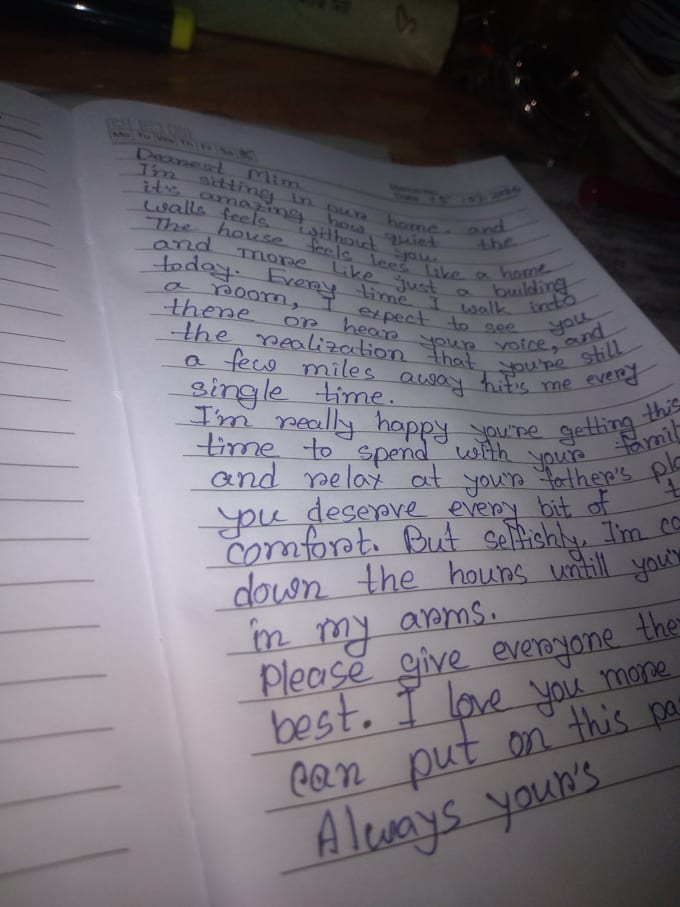 Mo Tu We Th Fr Sa Su
Date
Dearest Mim
I'm sitting in our home, and
it's amazing how quiet the
walls feels without you.
The house feels lees like a home
and more like just a building
today. Every time I walk into
a room, I expect to see you
there or hear your voice, and
the realization that you're still
a few miles away hit's me every
single time.
I'm really happy you're getting this
time to spend with your famil
and relax at your father's pla
you deserve every bit of t
comfort. But selfishly, I'm co
down the hours untill you'r
in my arms.
please give everyone the
best. I love you more
can put on this pa
Always your's